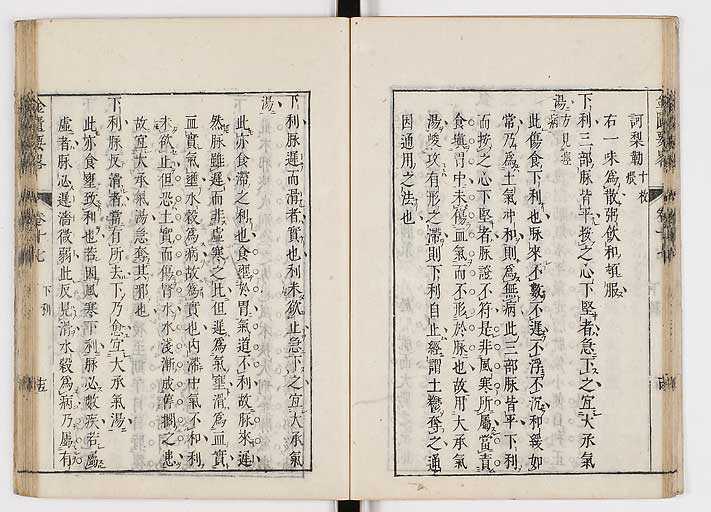 訶梨勒十枚煨
右一味為散粥飲和頓服
下利三部脉皆平按之心下堅者急下之宜大承氣
湯方見痙病
此傷食下利也脉来不數不遲不浮不沉和緩如
常乃為土氣冲和則為無病此三部脉皆平下利
而按之心下堅者脉證不符是非風寒所屬當責
食填胃中未傷血氣而不形於脉也故用大承氣
湯峻攻有形之滯則下利自止經謂土鬱奪之通
因通用之法也
下利脉遲而滑者實也利未欲止急下之宜大承氣
湯
此亦食滯之利也食壅於胃氣道不利故脉来遲
然脉雖遲而非虚寒之比但遲為氣壅滑為血實
血實氣壅水穀為病故為實也内滯中氣不和利
未欲止但恐土實而傷腎水水淺漸成停擱之患
故宜大承氣湯急奪其邪也
下利脉反滑者當有所去下乃愈宜大承氣湯
此亦食壅致利也若因風寒下利脉必數疾若屬
虚者脉必遲濇微弱此反見滑水穀為病乃屬有
金匱要畧
卷十七
下利